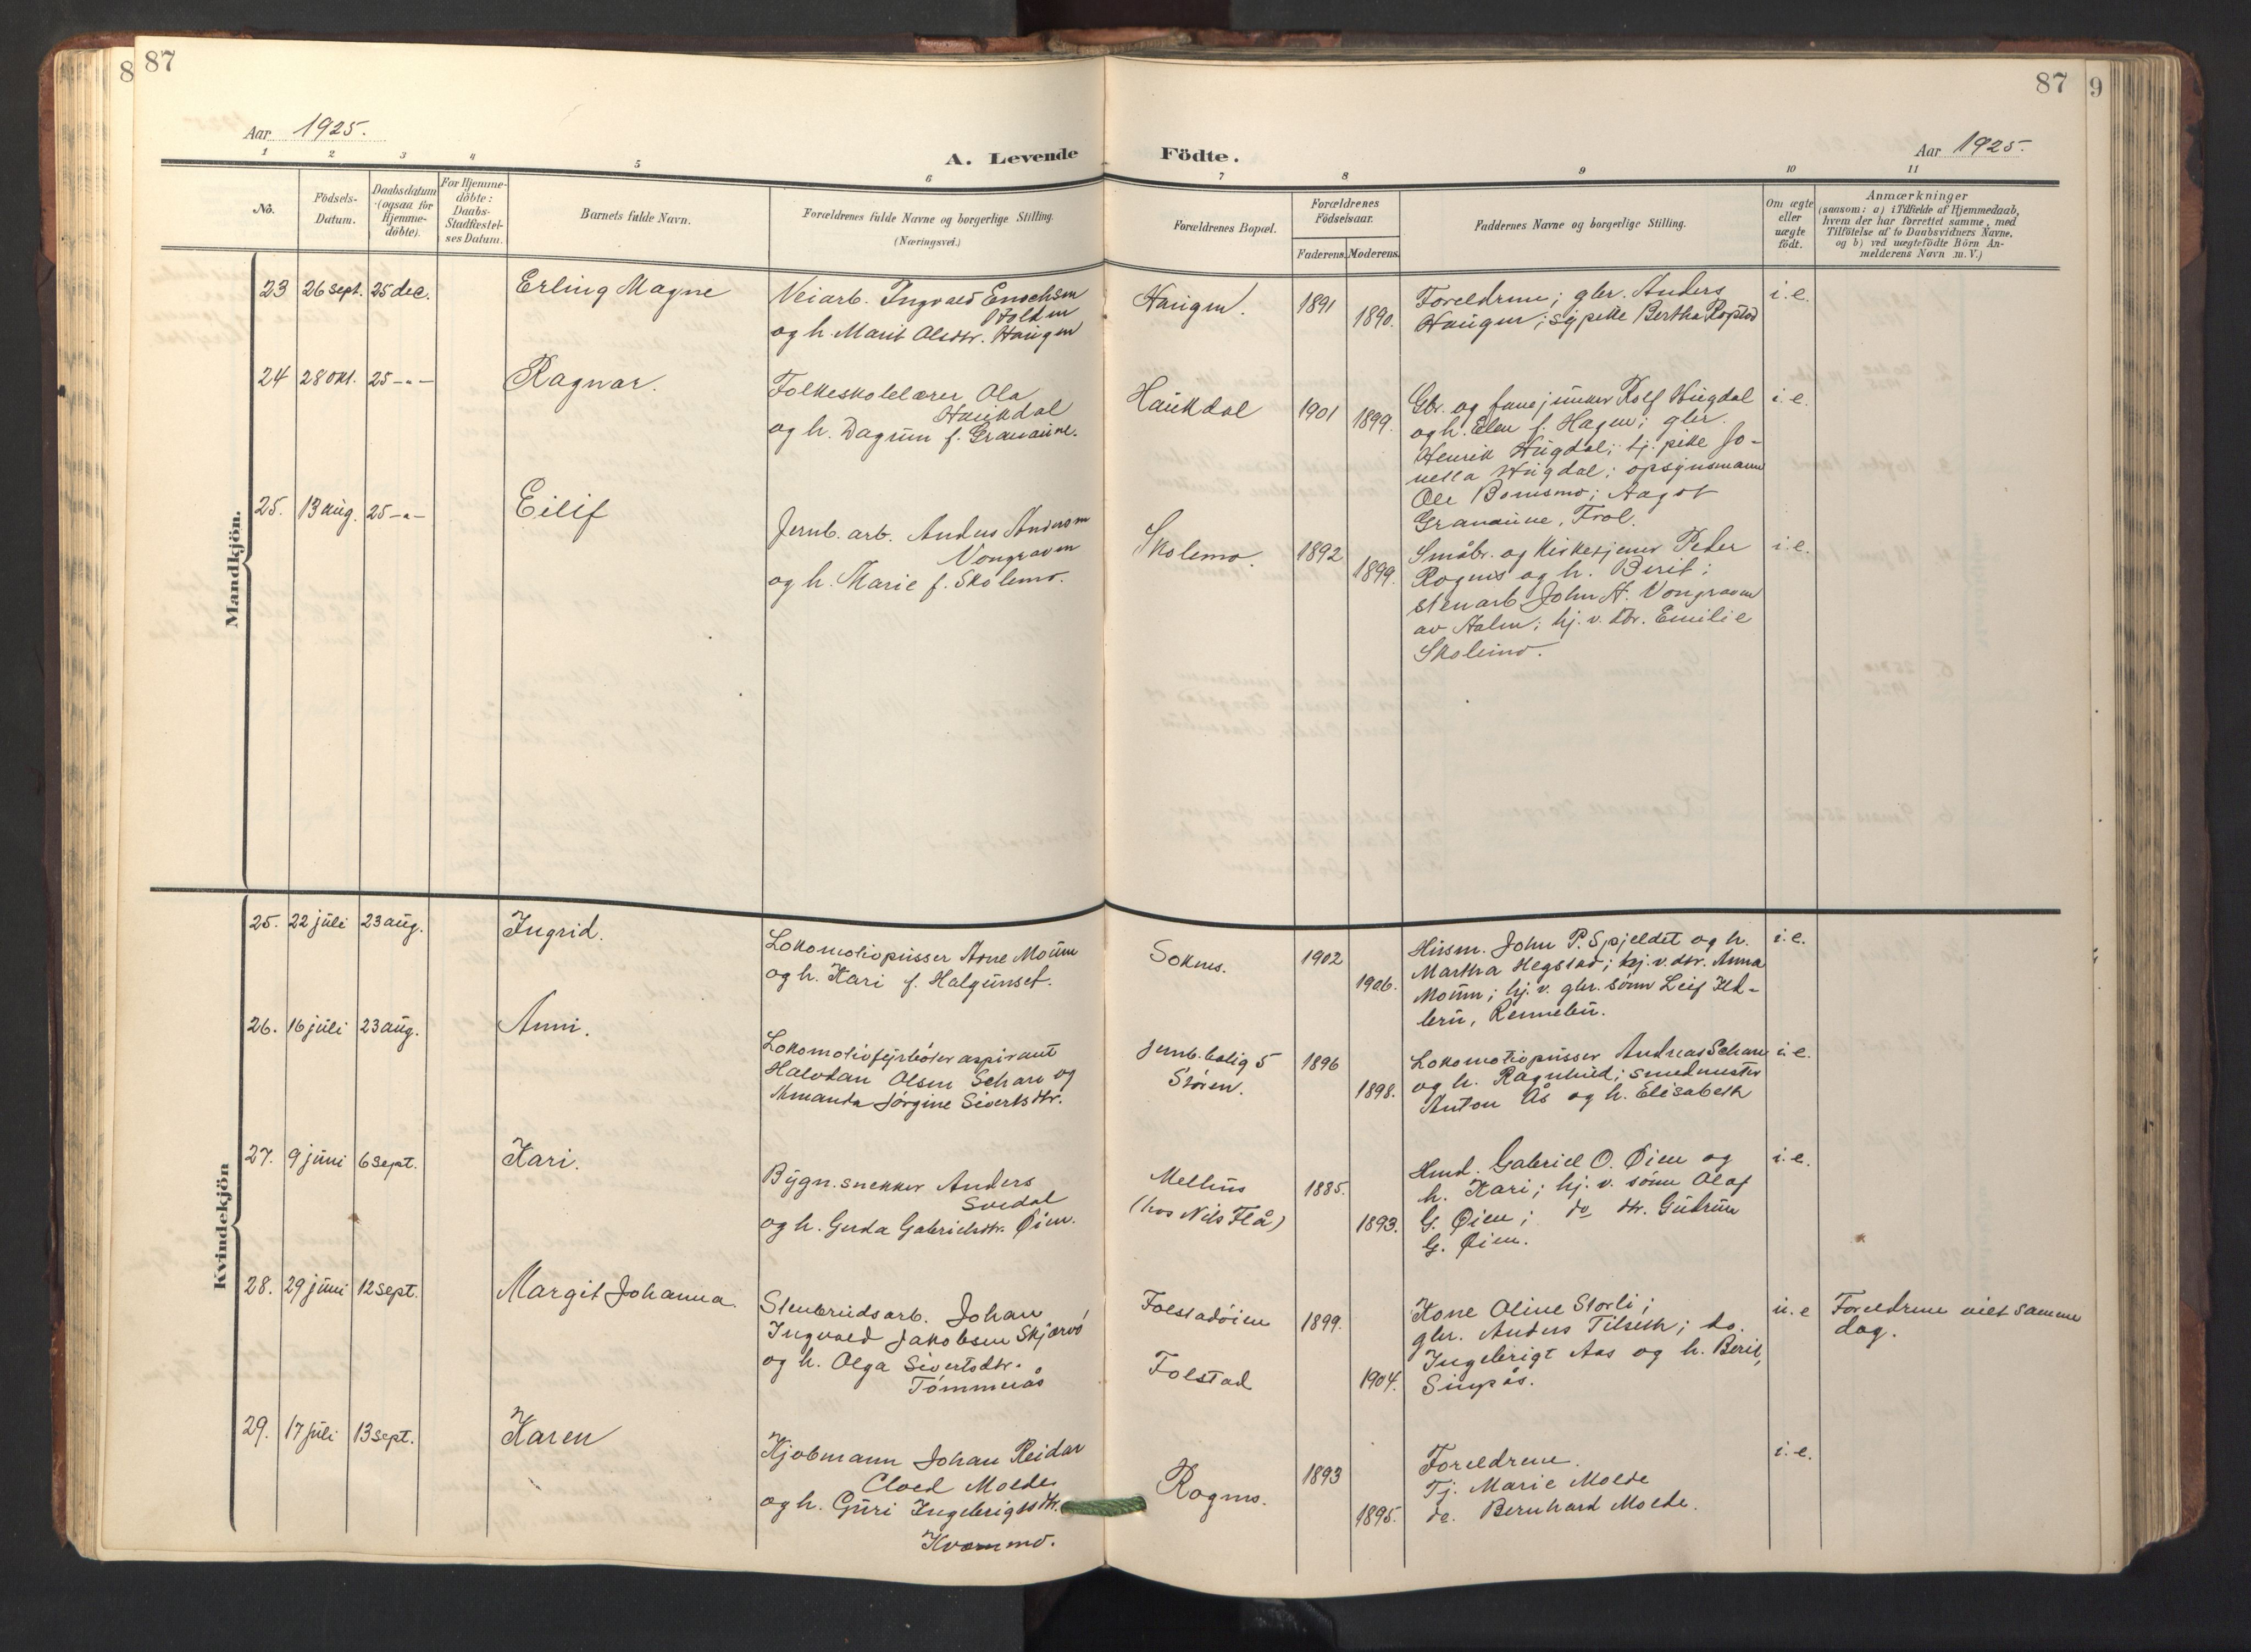 8 87
87 9
Aar 1925.
A. Levende Födte.
Aar 1925.
1 2 3 4 5 6 7 8 9 10 11
No.
Födsels-
Datum.
Daabsdatum
(ogsaa for
Hjemme-
döbte).
For Hjemme-
döbte:
Daabs-
Stadfæstel-
ses Datum.
Barnets fulde Navn.
Forældrenes fulde Navne og borgerlige Stilling.
(Næringsvei.)
Forældrenes Bopæl.
Forældrenes
Födselsaar.
Faderens. Moderens.
Faddernes Navne og borgerlige Stilling.
Om ægte
eller
uægte
födt.
Anmærkninger
(saasom: a) i Tilfælde af Hjemmedaab,
hvem der har forrettet samme, med
Tilföielse af to Daabsvidners Navne,
og b) ved uægtefödte Börn An-
melderens Navn m.V.)
Mandkjön.
23 26 sept. 25 dec.
Erling Magne
Veiarb. Ingvald Enochsen
Holden
og h. Marit Olsdtr. Haugen
Haugen.
1891
1890.
Foreldrene; gbr. Anders
Haugen; sypike Bertha
i. e.
24 28 okt. 25 -"-
Ragnar.
Folkeskolelærer Ola
Haukdal
og h. Dagrun f. Granaune.
Haukdal
1901
1899.
Gbr. og fanejunker Rolf Hugdal
og h. Elen f. Hagen; gbr.
Henrik Hugdal; tj. pike Jo-
netta Hugdal; opsynsmann
Ole Bonesmo; Aagot
Granaune, Frol.
i. e.
25. 13 aug. 25 -"-
Eilif
Jernb. arb. Anders Andersen
Vongraven
og h. Marie f. Skolemo.
Skolemo.
1892
1899.
Småbr. og kirketjener Peder
Rognes og h. Berit;
stenarb. John A. Vongraven
av Hølen; hj. v. dtr. Emilie
Skolemo.
i. e.
Kvindekjön
25. 22 juli 23 aug.
Ingrid.
Lokomotivpusser Arne Moum
og h. Kari f. Halgunset.
Soknes.
1902
1906.
Husm. John P. Spjeldet og h.
Martha Hegstad; hj. v. dtr. Anna
Moum; hj. v. gbr. sønn Leif
Rennebu.
i. e.
26. 16 juli 23 aug.
Anni.
Lokomotivfyrbøter aspirant
Halvdan Olsen Scharv og
Amanda Jørgine Sivertsdtr.
Jernb. bolig 5
Støren.
1896
1898.
Lokomotivpusser Andreas Schare
og h. Ragnhild; smedmester
Anton Ås og h. Elisabeth
i. e.
27. 9 juni 6 sept.
Kari.
Bygn. snekker Anders
Soedal
og h. Guda Gabrielsdtr. Øien.
Melhus
(hos Nils Flå)
1885.
1893.
Hmd. Gabriel O. Øien og
h. Kari; hj. v. sønn Olaf
G. Øien; do dtr. Gudrun
G. Øien.
i. e.
28. 29 juni 12 sept.
Margit Johanna.
Stenbrudsarb. Johan
Ingvald Jakobsen Skjærvø
og h. Olga Sivertsdtr.
Tømmerås
Folstadøien
Folstad
1899.
1904.
Kone Oline Storli;
gbr. Anders Tilseth; do.
Ingebrigt Aas og h. Berit,
Singsås.
u. e
Foreldrene viet samme
dag.
29. 17 juli 13 sept.
Karen
Kjøbmann Johan Reidar
Cloed Molde
og h. Guri Ingebrigtsdtr.
Kvammo.
Rognes.
1893
1895.
Foreldrene.
Tj. Marie Molde
do. Bernhard Molde.
i. e.